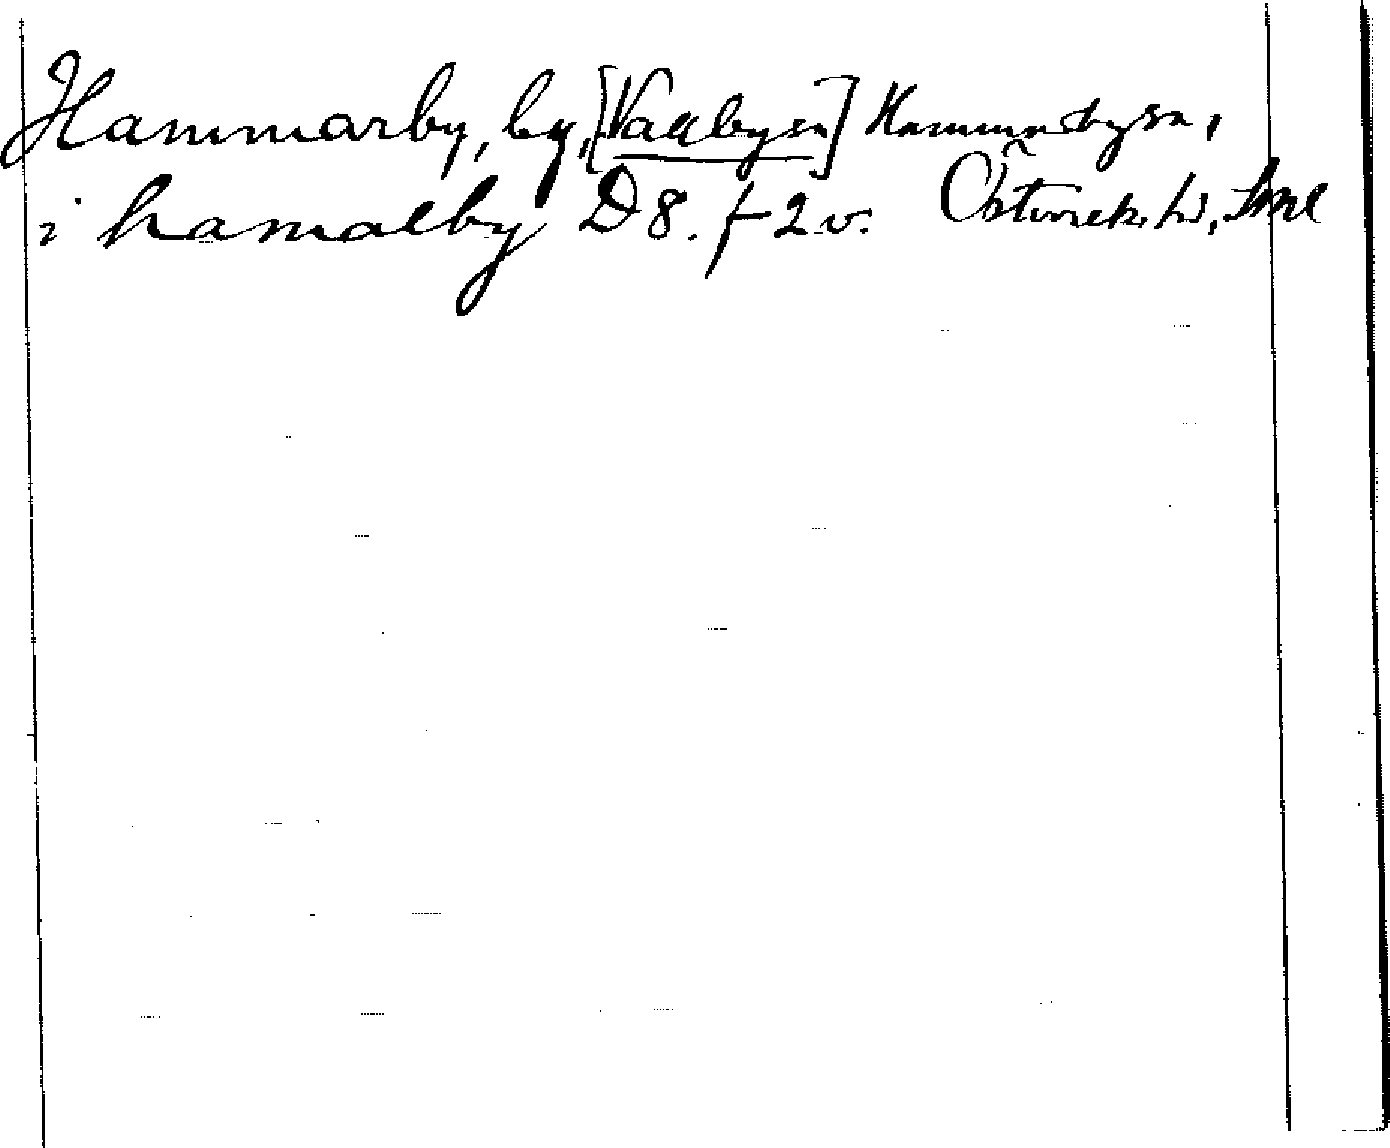 Hammarby, by, [Vallbysn] Hammarbysn,
i hamalby D8. f 2 v. Österrek. hd, Sml